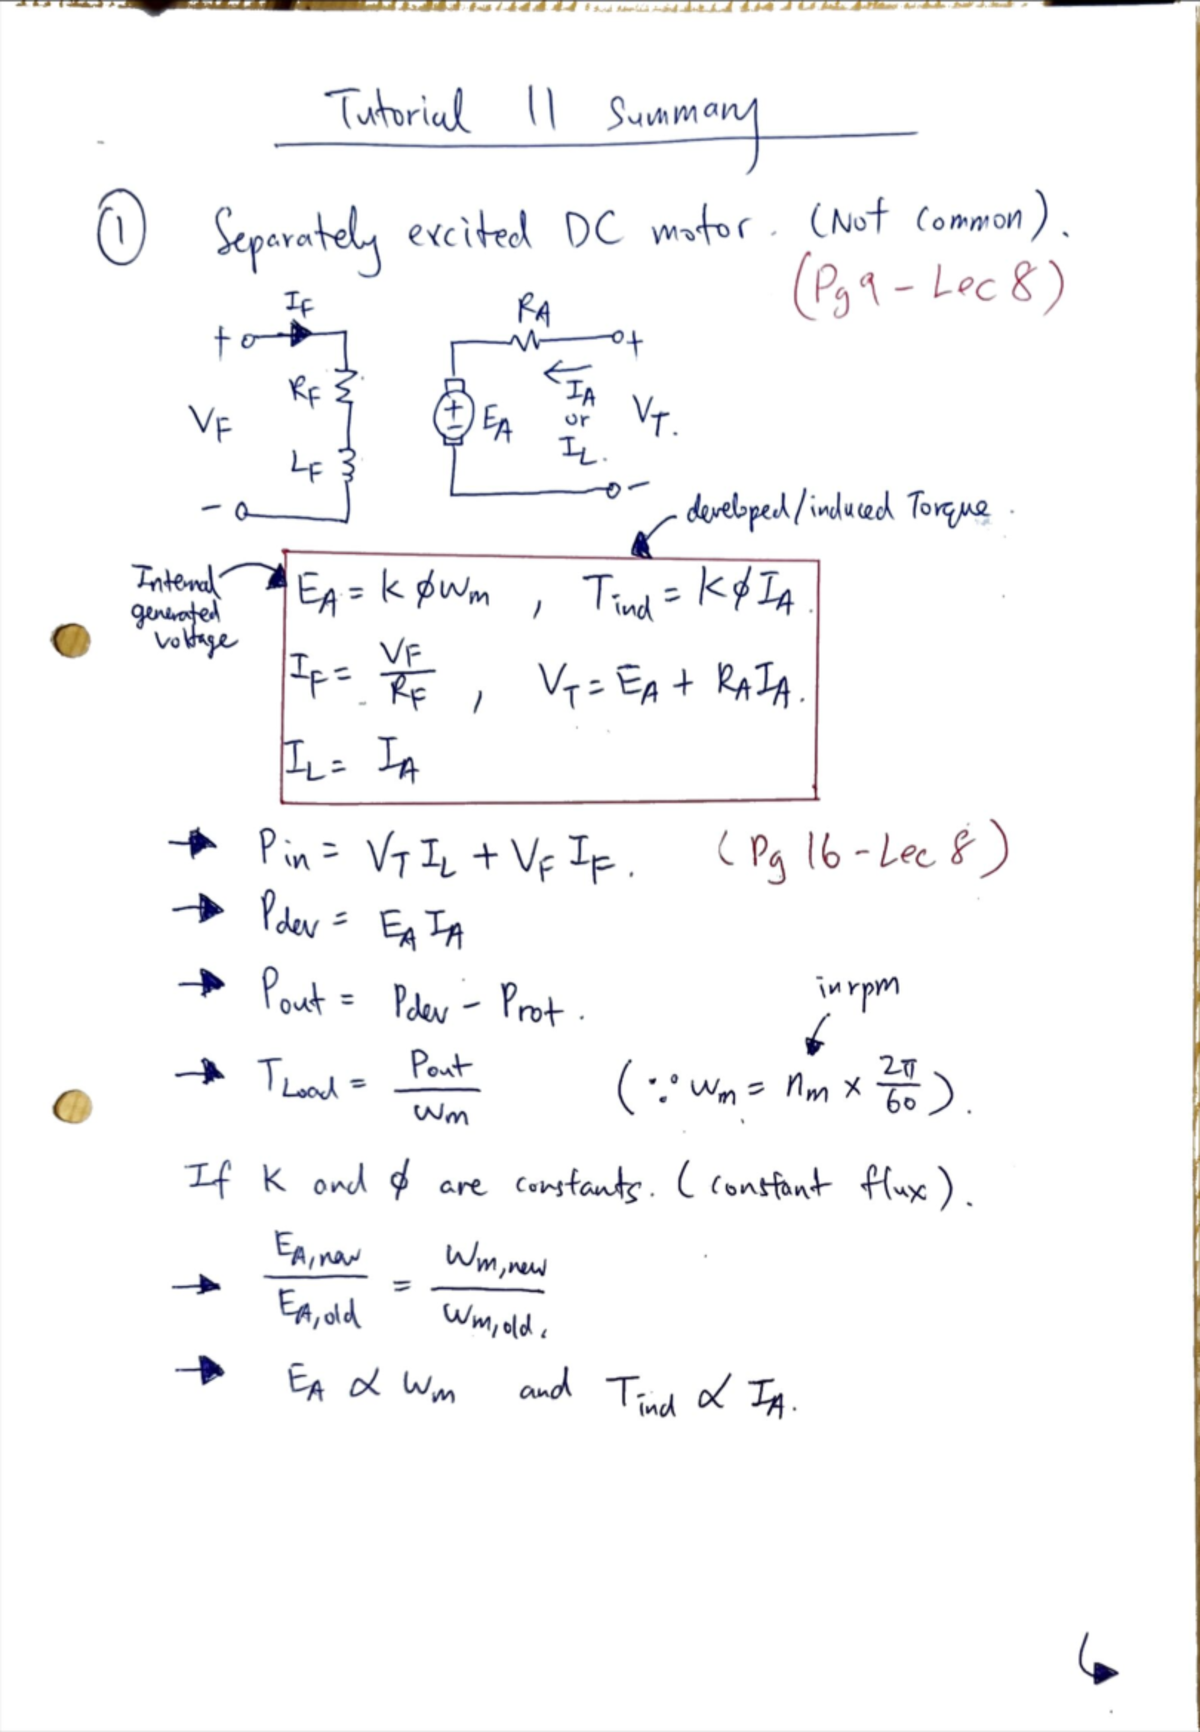 Tutorial 11 Summary
① Separately excited DC motor. (Not common).
(Pg 9 - Lec 8)
IF
RA
+
+
RF
IA
VF
+
-
EA
or
VT.
LF
IL.
-
-
developed/induced Torque.
Internal
generated
voltage
EA = kϕωm , Tind = kϕIA.
IF = VF/RF , VT = EA + RAIA.
IL = IA
→ Pin = VT IL + VF IF. (Pg 16 - Lec 8)
→ Pdev = EA IA
→ Pout = Pdev - Prot.
in rpm
→ TLoad = Pout/ωm (∵ ωm = nm × 2π/60).
If K and ϕ are constants. (constant flux).
→ EA,new/EA,old = ωm,new/ωm,old.
→ EA ∝ ωm and Tind ∝ IA.